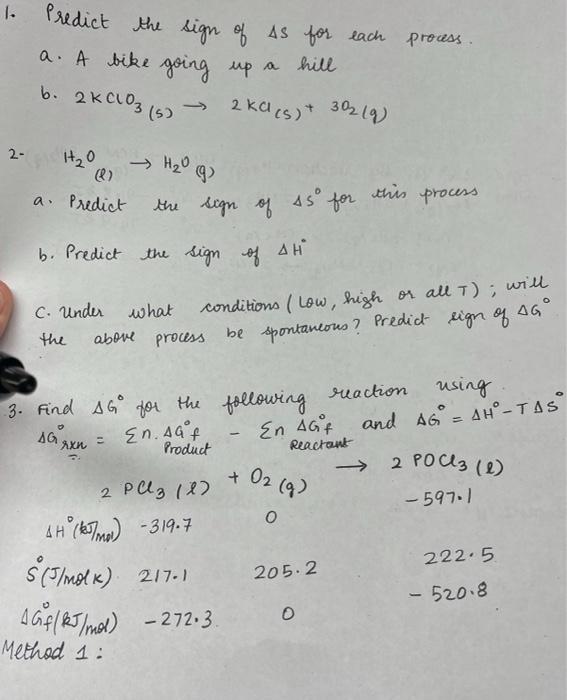 1. Predict the sign of ΔS for each process.
a. A bike going up a hill
b. 2KClO3 (s) → 2KCl (s) + 3O2 (g)
2- H2O (l) → H2O (g)
a. Predict the sign of ΔS° for this process
b. Predict the sign of ΔH°
C. Under what conditions (Low, high or all T) ; will
the above process be spontaneous? Predict sign of ΔG°
3. Find ΔG° for the following reaction using.
ΔG°rxn = Σn. ΔG°f Product - Σn ΔG°f Reactant and ΔG° = ΔH° - TΔS°
2 PCl3 (l) + O2 (g) → 2 POCl3 (l)
ΔH° (kJ/mol) -319.7 0 -597.1
S° (J/mol K) 217.1 205.2 222.5
ΔG°f (kJ/mol) -272.3 0 -520.8
Method 1 :